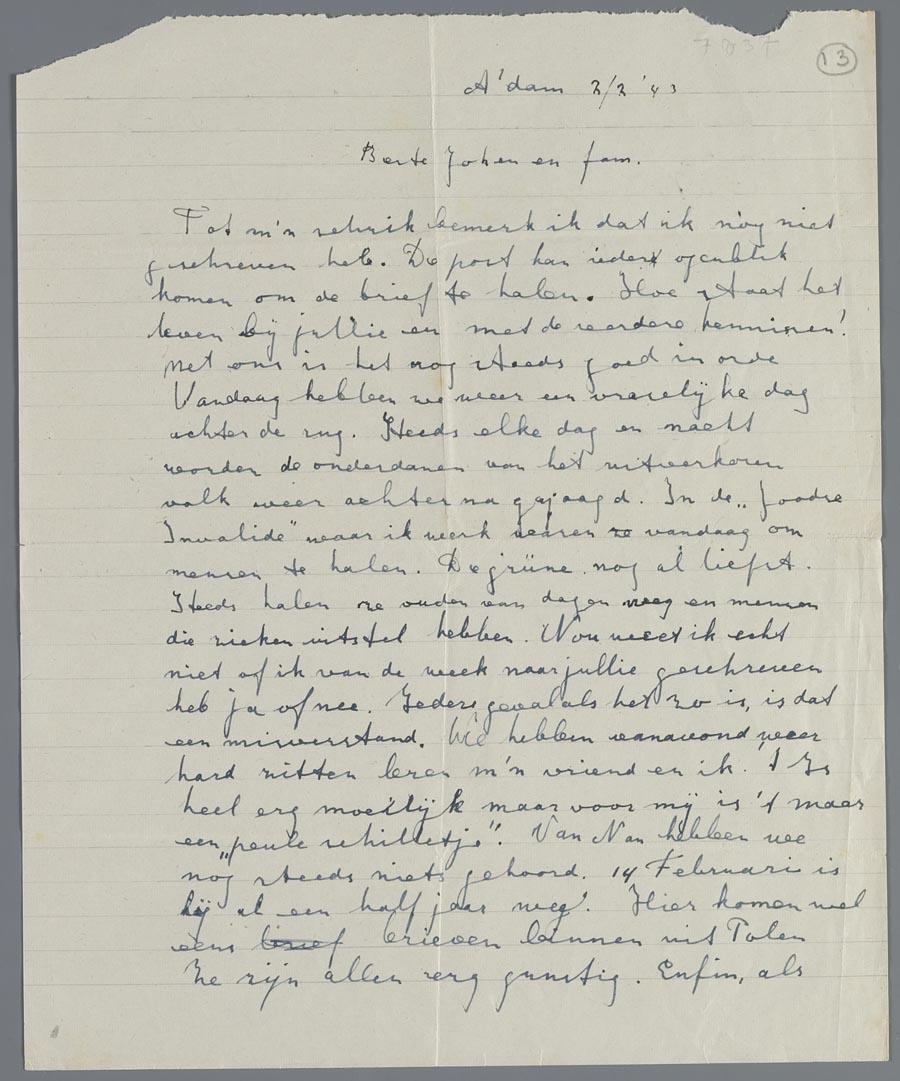 13
A'dam 2/2 '43
Beste Johen en fam.
Tot m'n schrik bemerk ik dat ik nog niet
geschreven heb. De post kan ieder ogenblik
komen om de brief te halen. Hoe staat het
leven bij jullie en met de verdere kennissen!
Met ons is het nog steeds goed in orde
Vandaag hebben we weer een vreselijke dag
achter de rug. Steeds elke dag en nacht
worden de onderdanen van het uitverkoren
volk weer achterna gejaagd. In de „Joodse
Invalide" waar ik werk waren ze vandaag om
mensen te halen. De grüne nog al liefst.
Steeds halen ze ouden van dagen weg en mensen
die zieken uitstel hebben. Nou weet ik echt
niet of ik van de week naar jullie geschreven
heb ja of nee. Ieders geval als het zo is, is dat
een misverstand. We hebben vanavond weer
hard zitten leren m'n vriend en ik. 't Is
heel erg moeilijk maar voor mij is 't maar
een „peule schilletje". Van Nan hebben we
nog steeds niets gehoord. 14 Februari is
hij al een half jaar weg. Hier komen wel
eens brief brieven binnen uit Polen
Ze zijn allen erg gunstig. Enfin, als